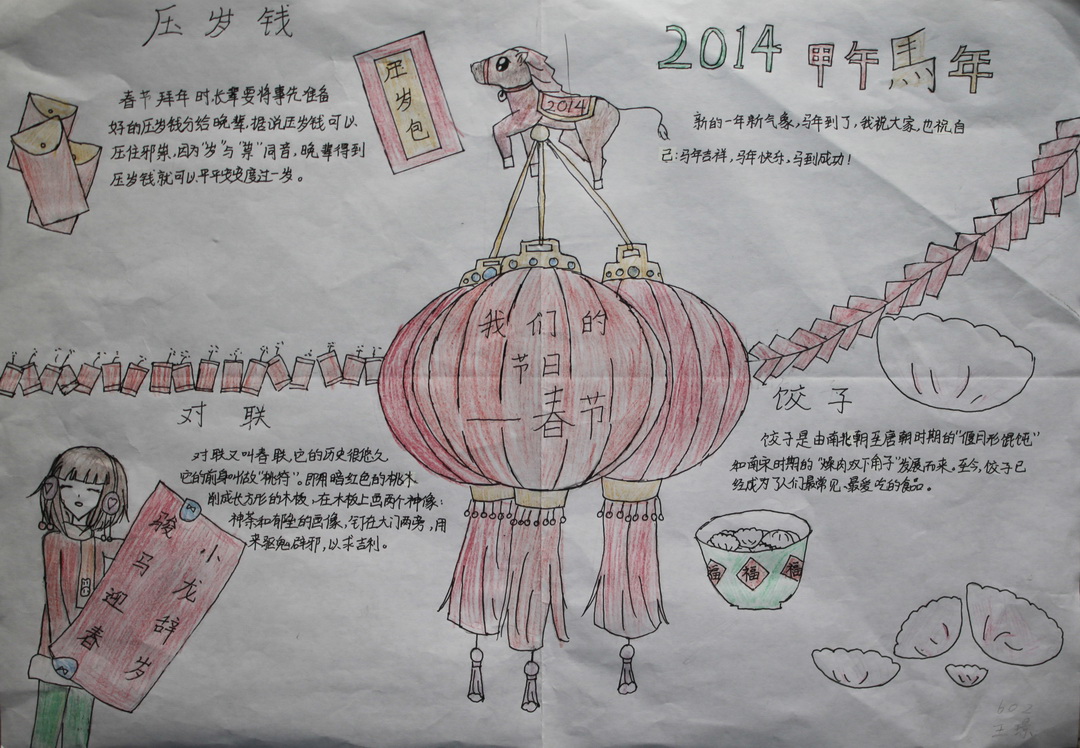 压岁钱
春节拜年时,长辈要将事先准备
好的压岁钱分给晚辈,据说压岁钱可以
压住邪祟,因为“岁”与“祟”同音,晚辈得到
压岁钱就可以平平安安度过一岁。
压岁包
2014
2014 甲午馬年
新的一年新气象,马年到了,我祝大家,也祝自
己:马年吉祥,马年快乐,马到成功!
我们的
节日
—春节
对联
对联又叫春联,它的历史很悠久
它的前身叫做“桃符”。即用暗红色的桃木
削成长方形的木板,在木板上画两个神像:
神荼和郁垒的画像,钉在大门两旁,用
来驱鬼辟邪,以求吉利。
小龙辞岁
骏马迎春
饺子
饺子是由南北朝至唐朝时期的“偃月形馄饨”
和南宋时期的“燥肉双下角子”发展而来。至今,饺子已
经成为了人们最常见、最爱吃的食品。
福 福 福
602
王